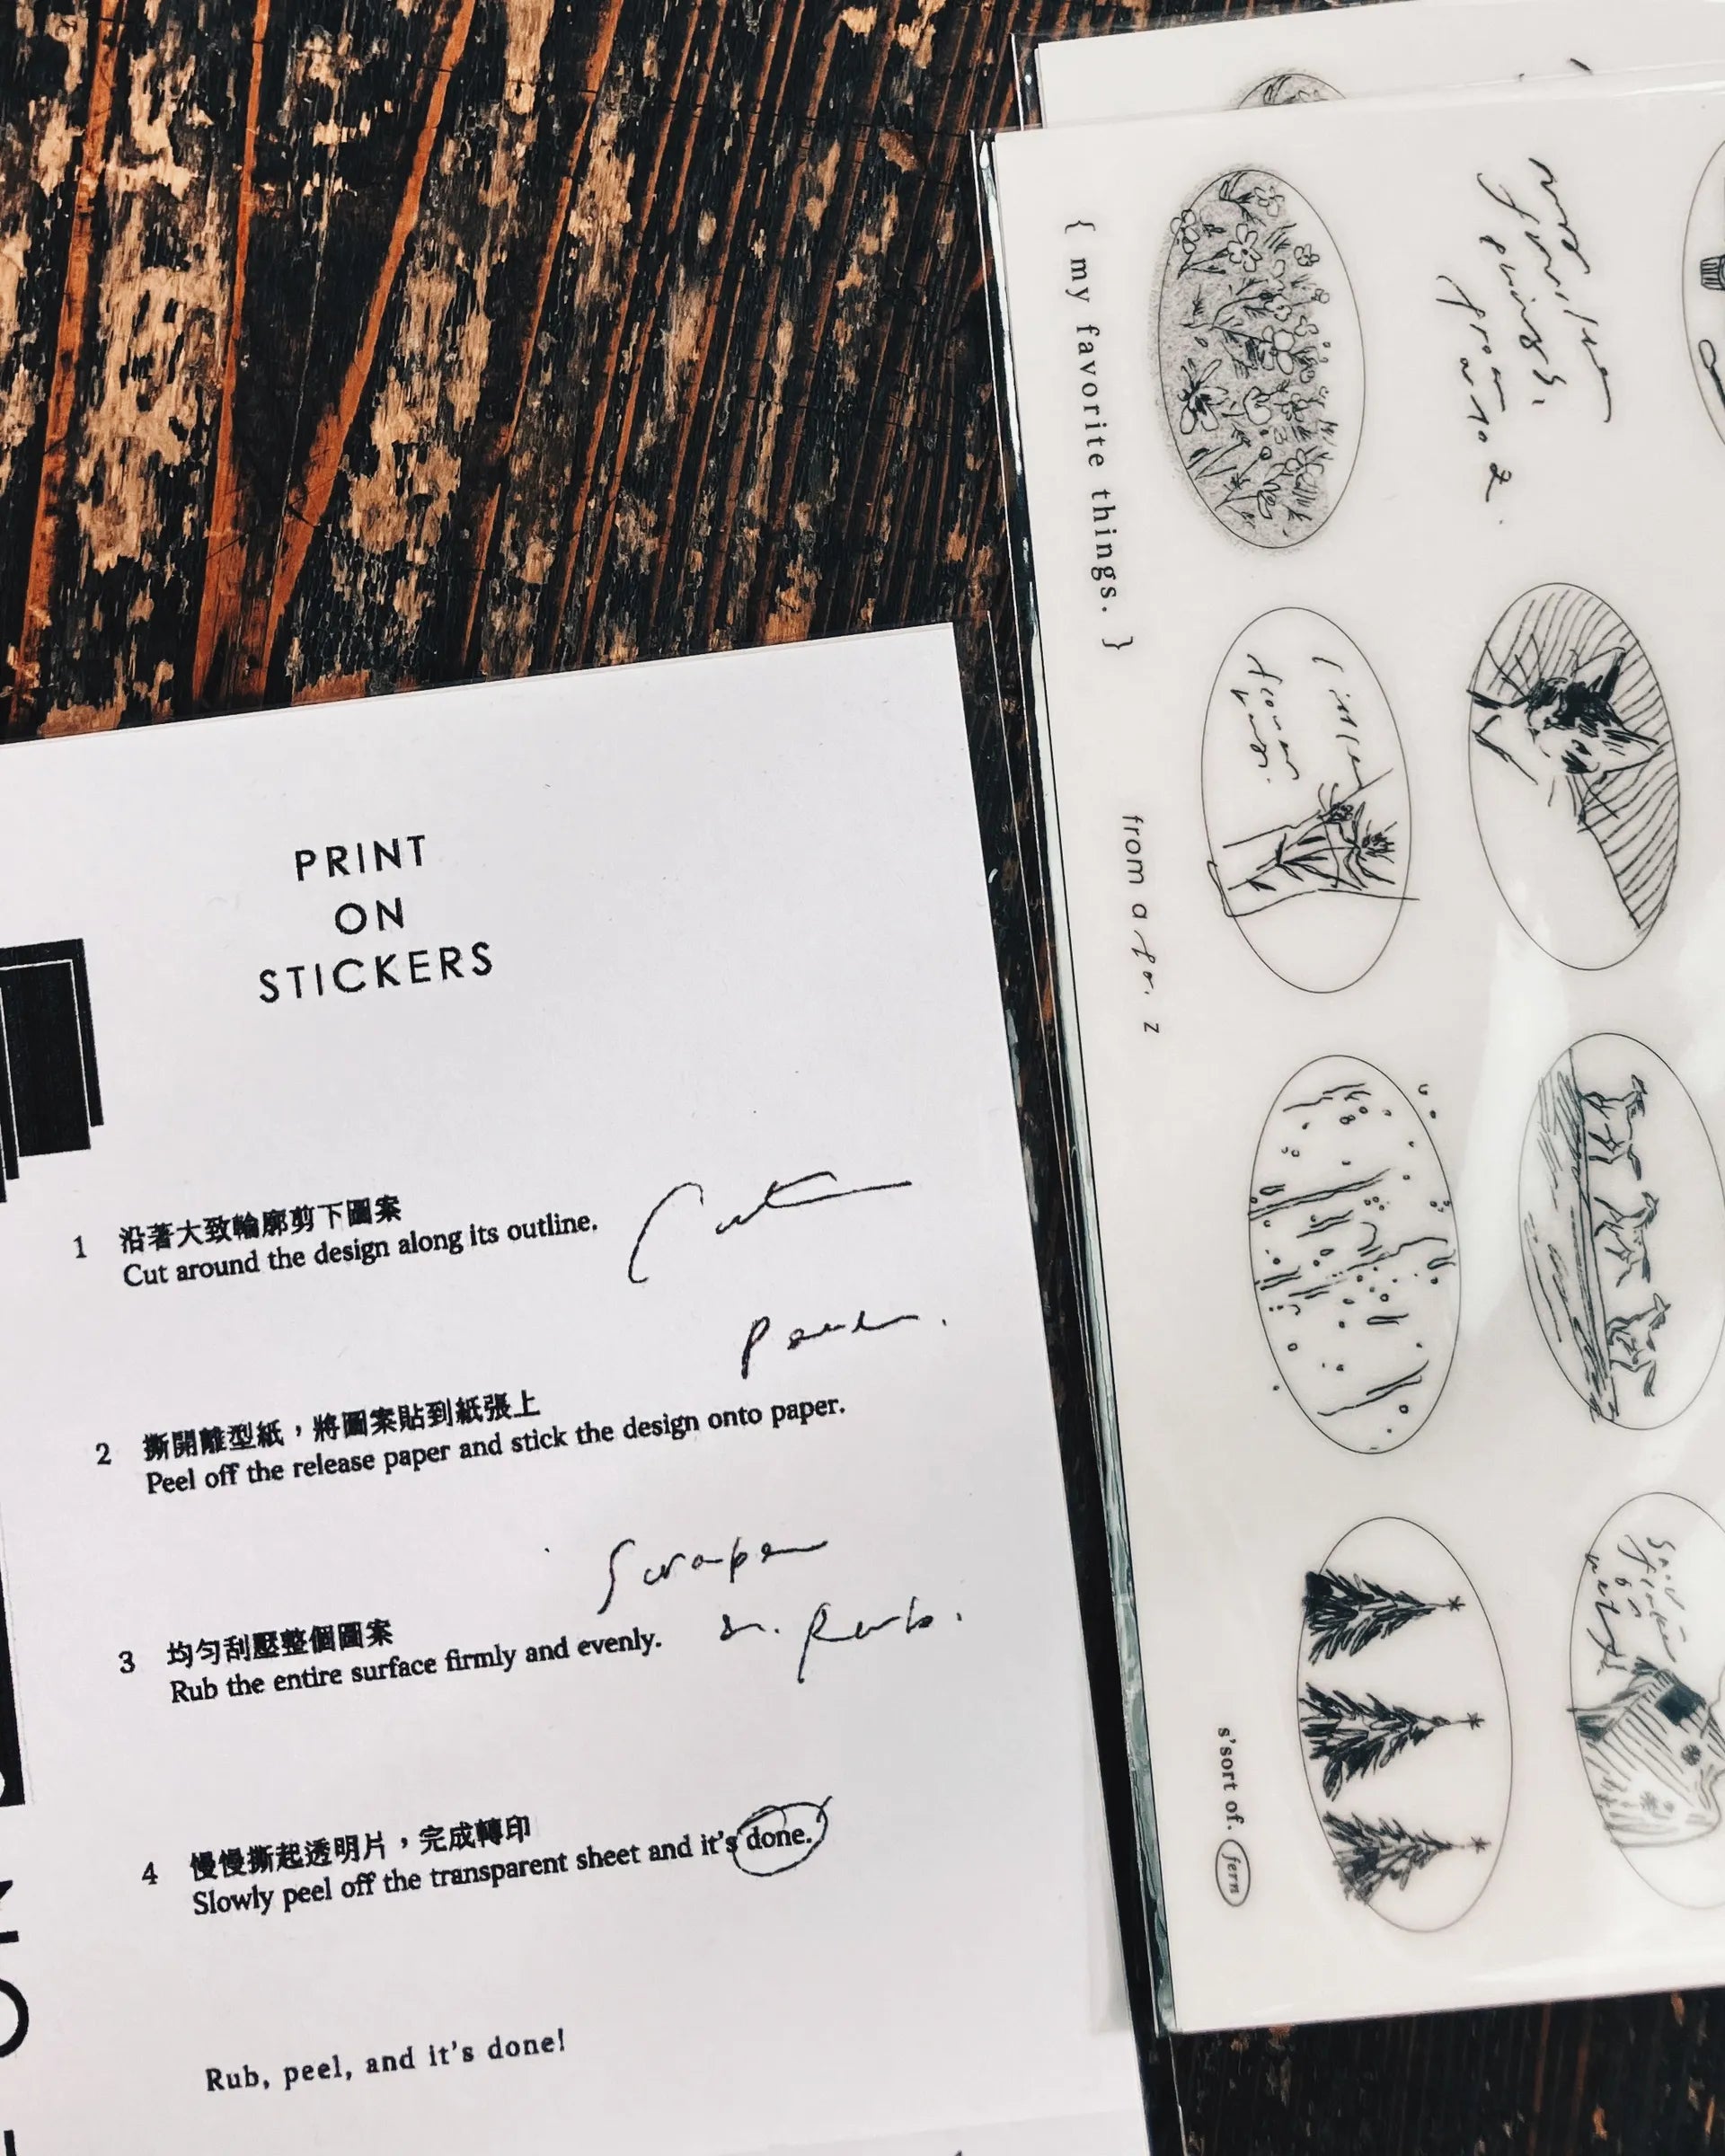 PRINT
ON
STICKERS
1 沿著大致輪廓剪下圖案
Cut around the design along its outline.
Cut
2 撕開離型紙，將圖案貼到紙張上
Peel off the release paper and stick the design onto paper.
3 均勻刮壓整個圖案
Rub the entire surface firmly and evenly.
Rub.
4 慢慢撕起透明片，完成轉印
Slowly peel off the transparent sheet and it's done.
Rub, peel, and it's done!
{ my favorite things. }
from a for. z
s'sort of. fern
from a to z.